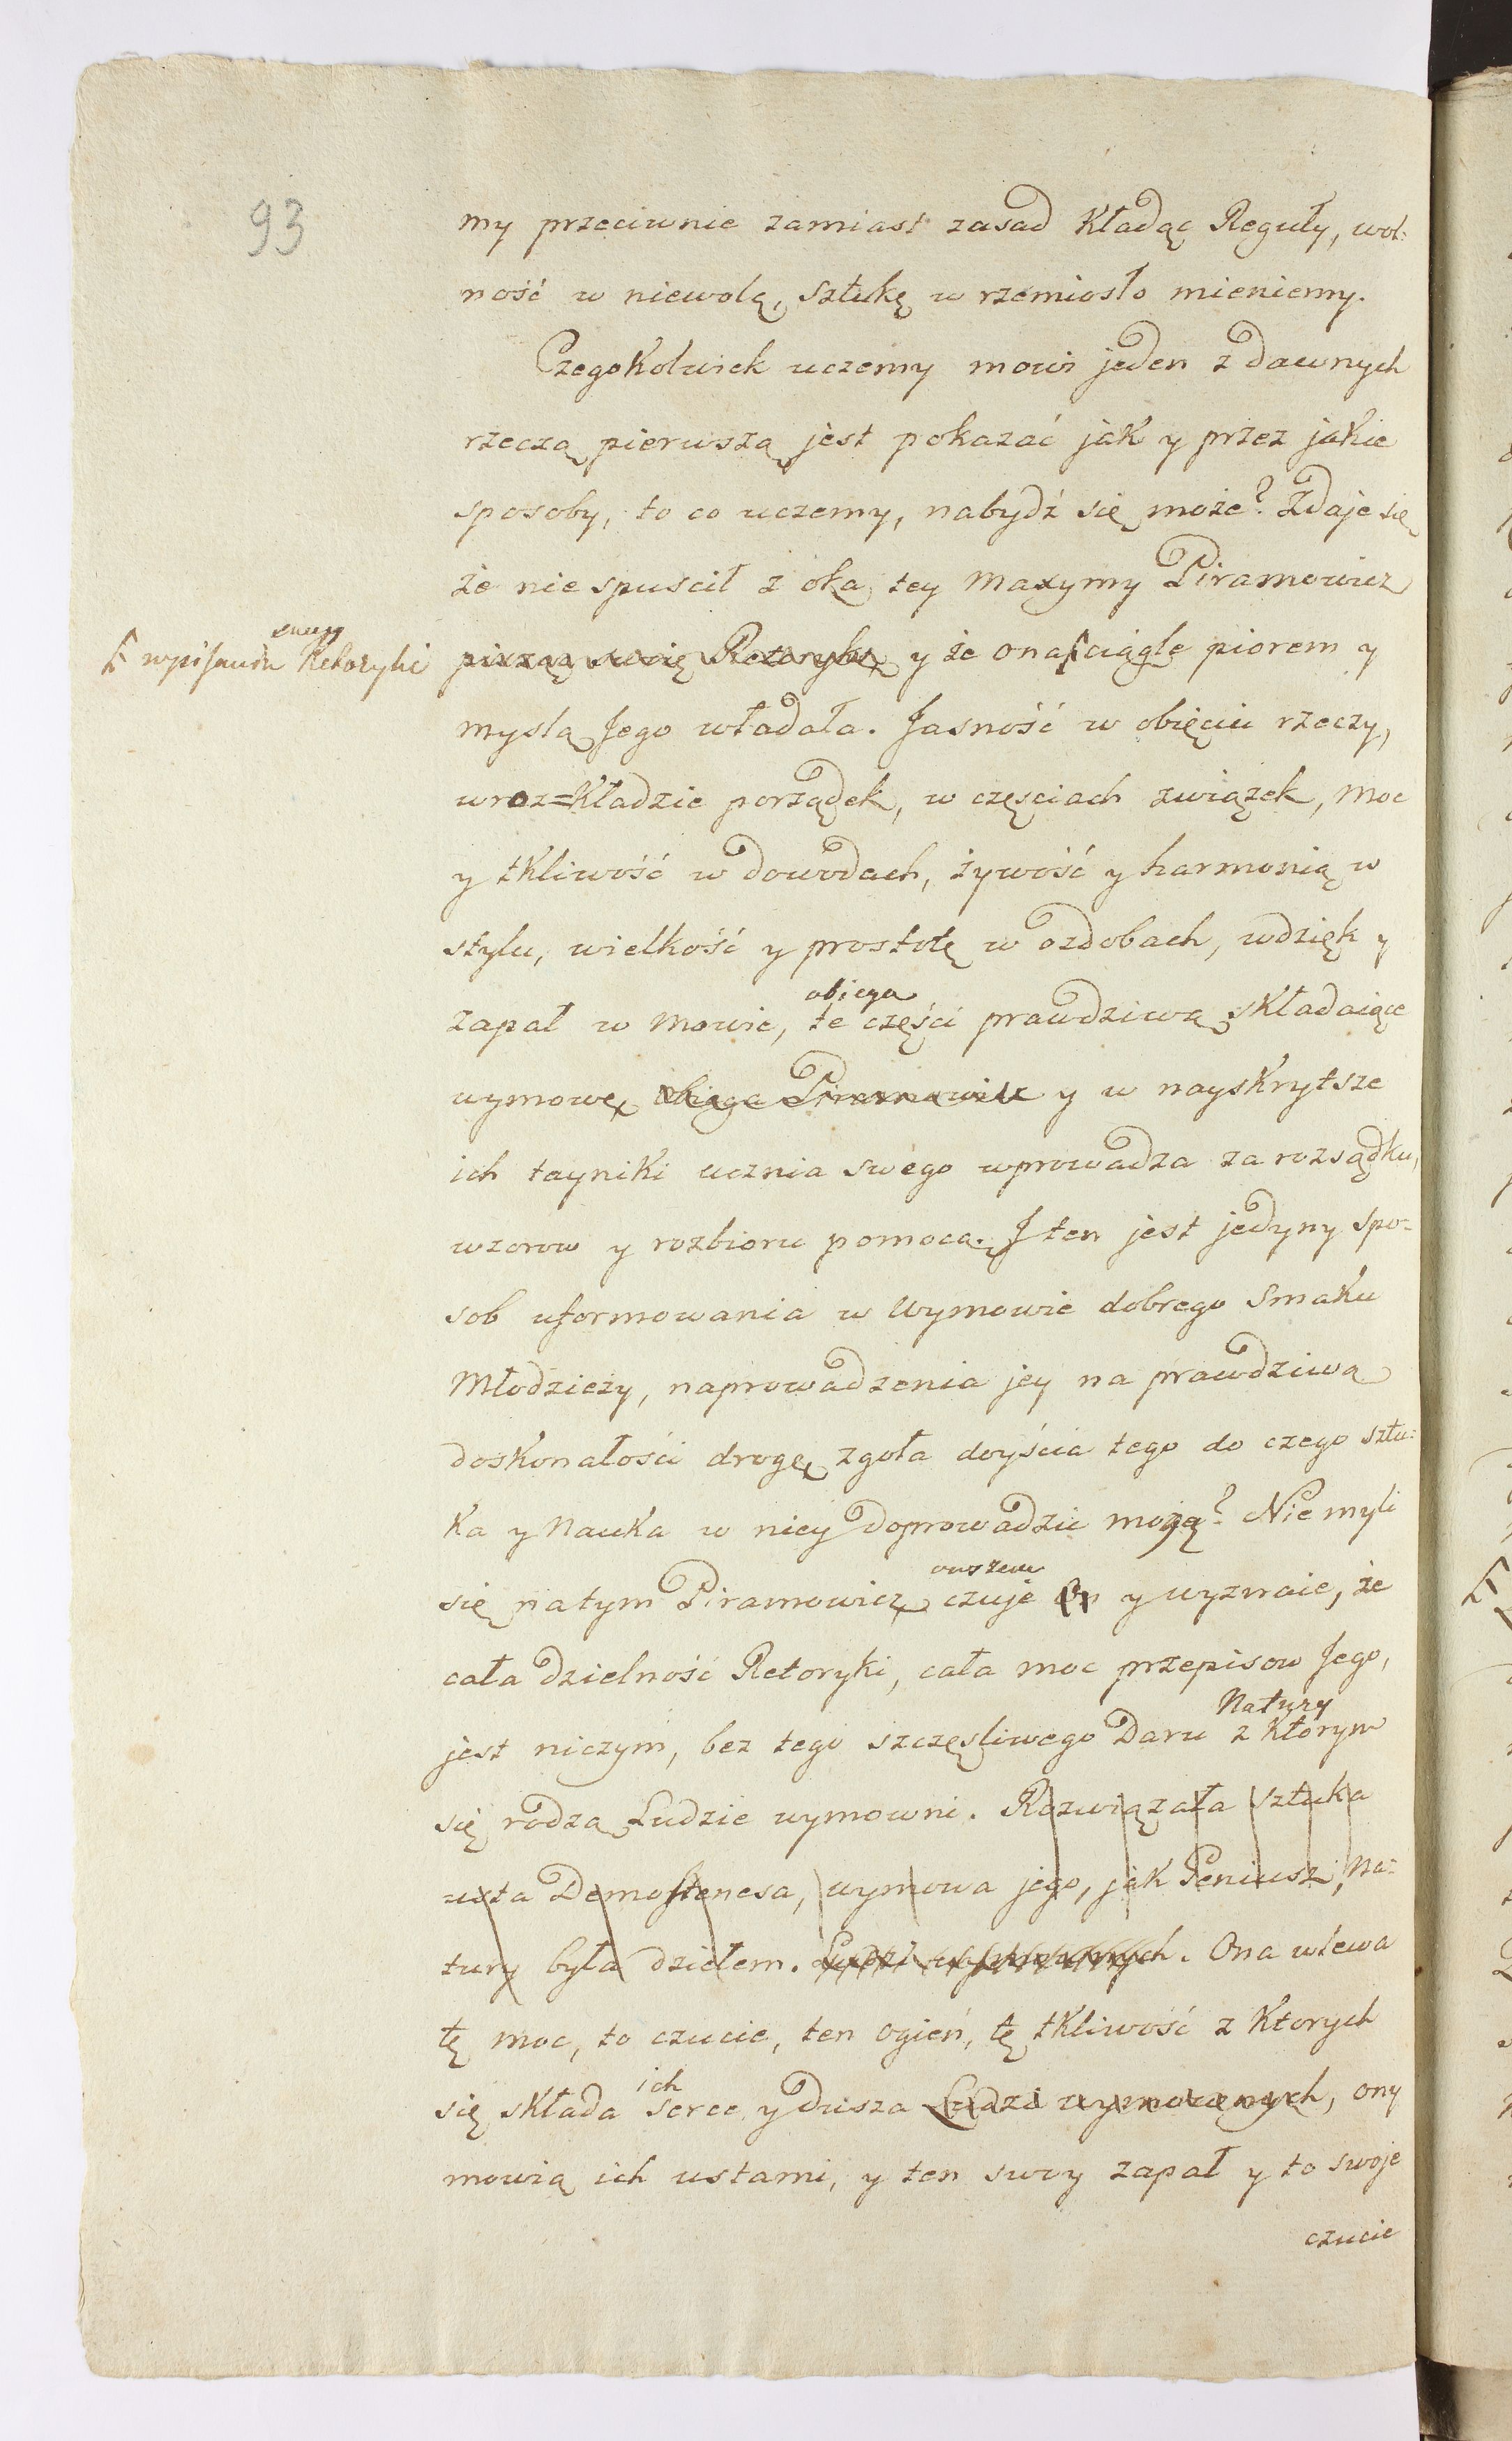 93
my przeciwnie zamiast zasad Kładąc Reguły, wol-
ność w niewolą, sztukę w rzemiosło mieniemy.
CzegoKolwiek uczemy mowi jeden z dawnych
rzeczą pierwszą jest pokazać jak y przez jakie
sposoby, to co uczemy, nabydź się może? Zdaje się
że nie spuscił z oka tey Maxymy Piramowicz
swey
w pisaniu Retoryki
pisząc swoię Retorykę y że ona ciągle piorem y
myslą Jego władała. Jasność w obięciu rzeczy,
w roz=Kładzie porządek, w częsciach związek, Moc
y tKliwość w dowodach, żywość y harmonią w
stylu, wielkość y prostotę w ozdobach, wdzięk y
obiega
zapał w Mowie, te części prawdziwą sKładaiące
wymowę obiega Piramowicz y w nayskrytsze
ich tayniki ucznia swego wprowadza za rozsądku,
wzorow y rozbioru pomocą. J ten jest jedyny spo-
sob uformowania w Wymowie dobrego Smaku
Młodzieży, naprowadzenia jey na prawdziwą
doskonałości drogę zgoła doyścia tego do czego sztu-
Ka y Nauka w niey doprowadzić mogą? Nie myli
owszem
się na tym Piramowicz czuje On y wyznaie, że
cała dzielność Retoryki, cała moc przepisow Jego,
Natury
jest niczym, bez tego szczęsliwego Daru z Ktorym
się rodzą Ludzie wymowni. Rozwiązała sztuka
usta Demostenesa, wymowa jego, jak Geniusz, Na-
tury była dziełem. Ludzi wymownych. Ona wlewa
tę moc, to czucie, ten ogień, tę tKliwość z Ktorych
ich
się sKłada serce y Dusza Ludzi wymownych, ony
mowią ich ustami, y ten swoy zapał y to swoje
czucie